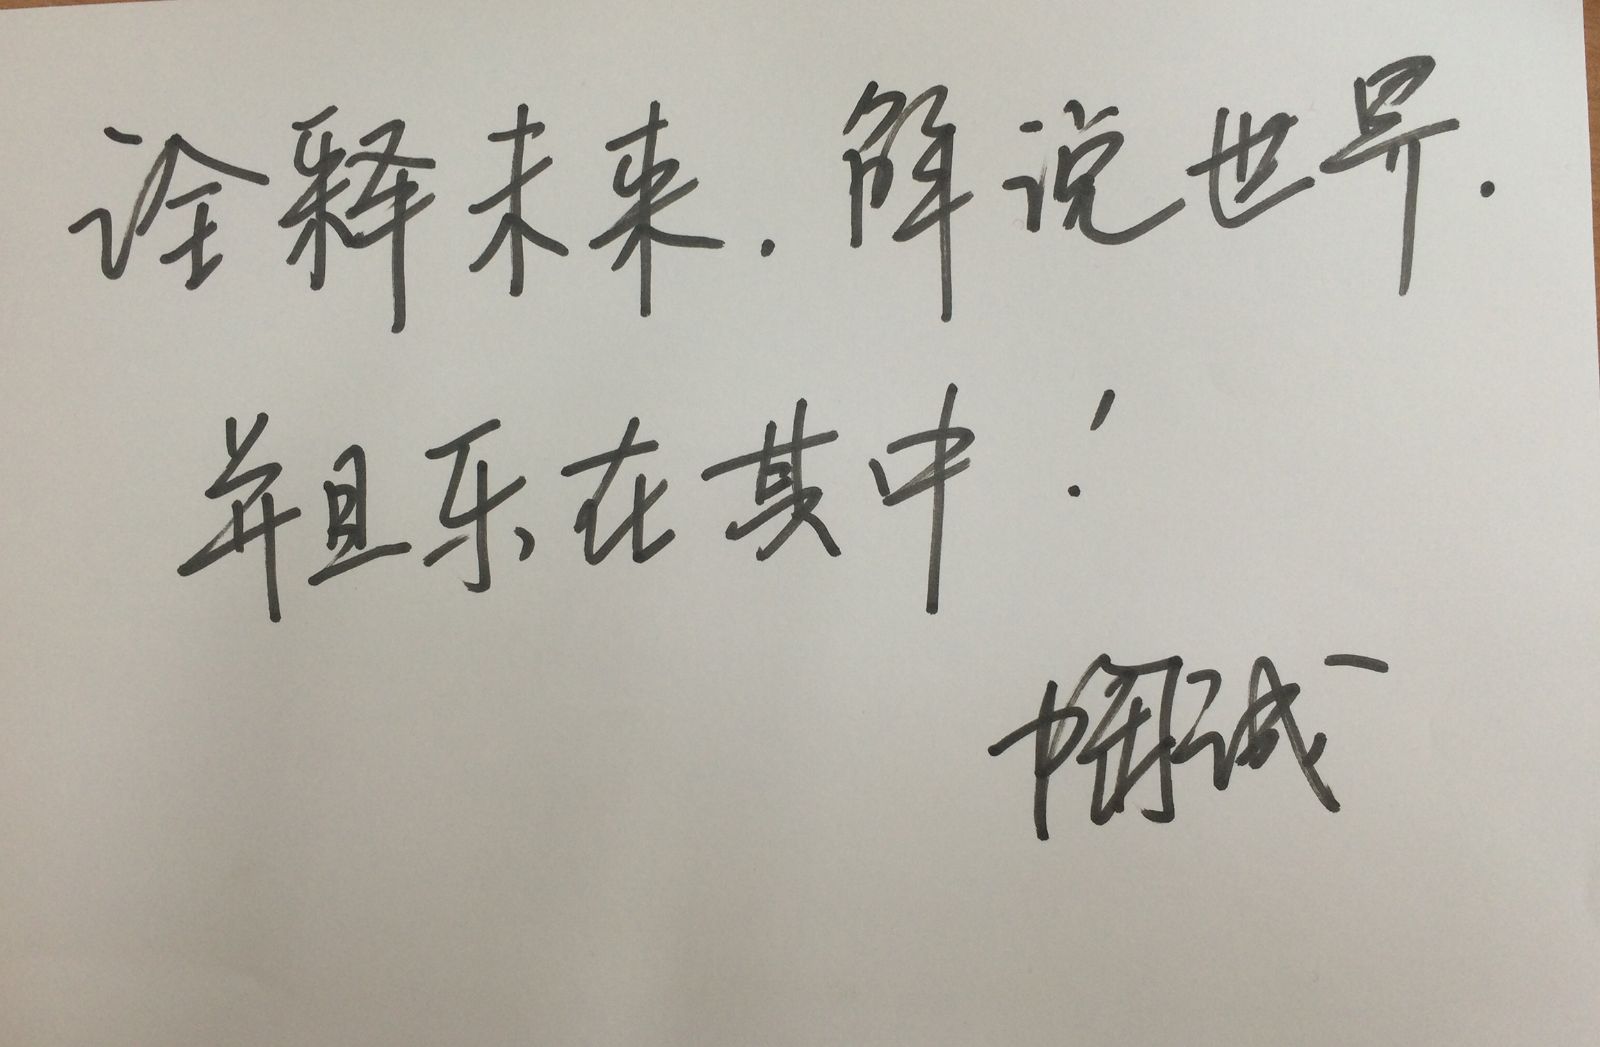 诠释未来.解说世界.
并且乐在其中!
陶诚